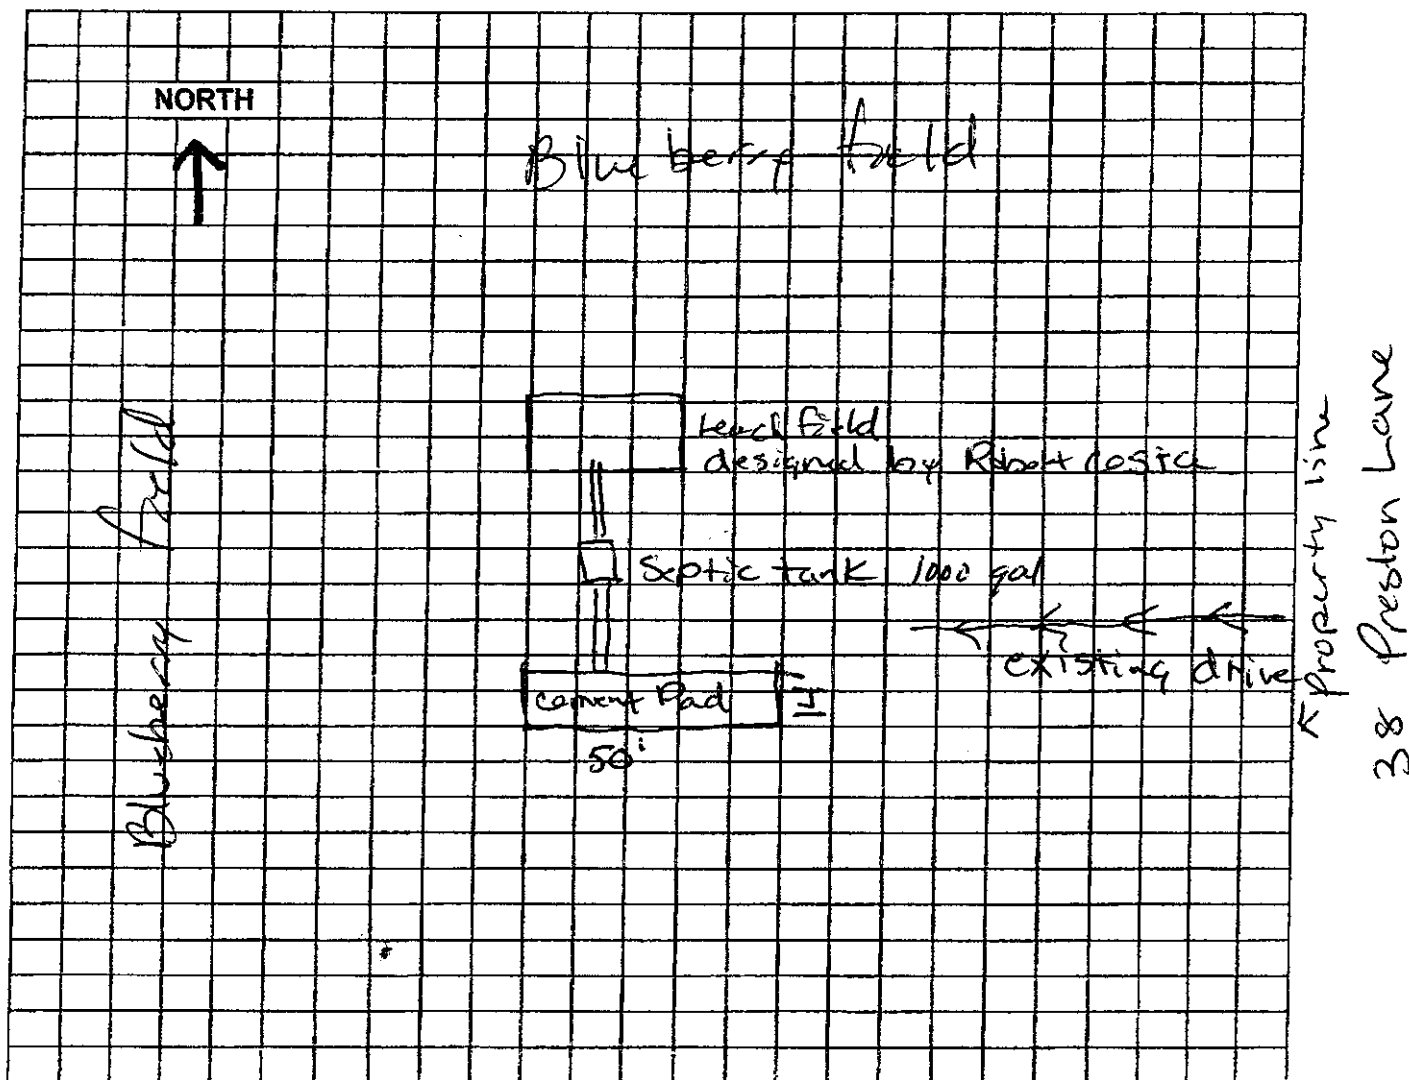 NORTH
Blueberry field
Blueberry field
leach field
designed by Robert Costa
Septic tank 1000 gal
existing drive
cement Pad
50'
Property line
38 Preston Lane